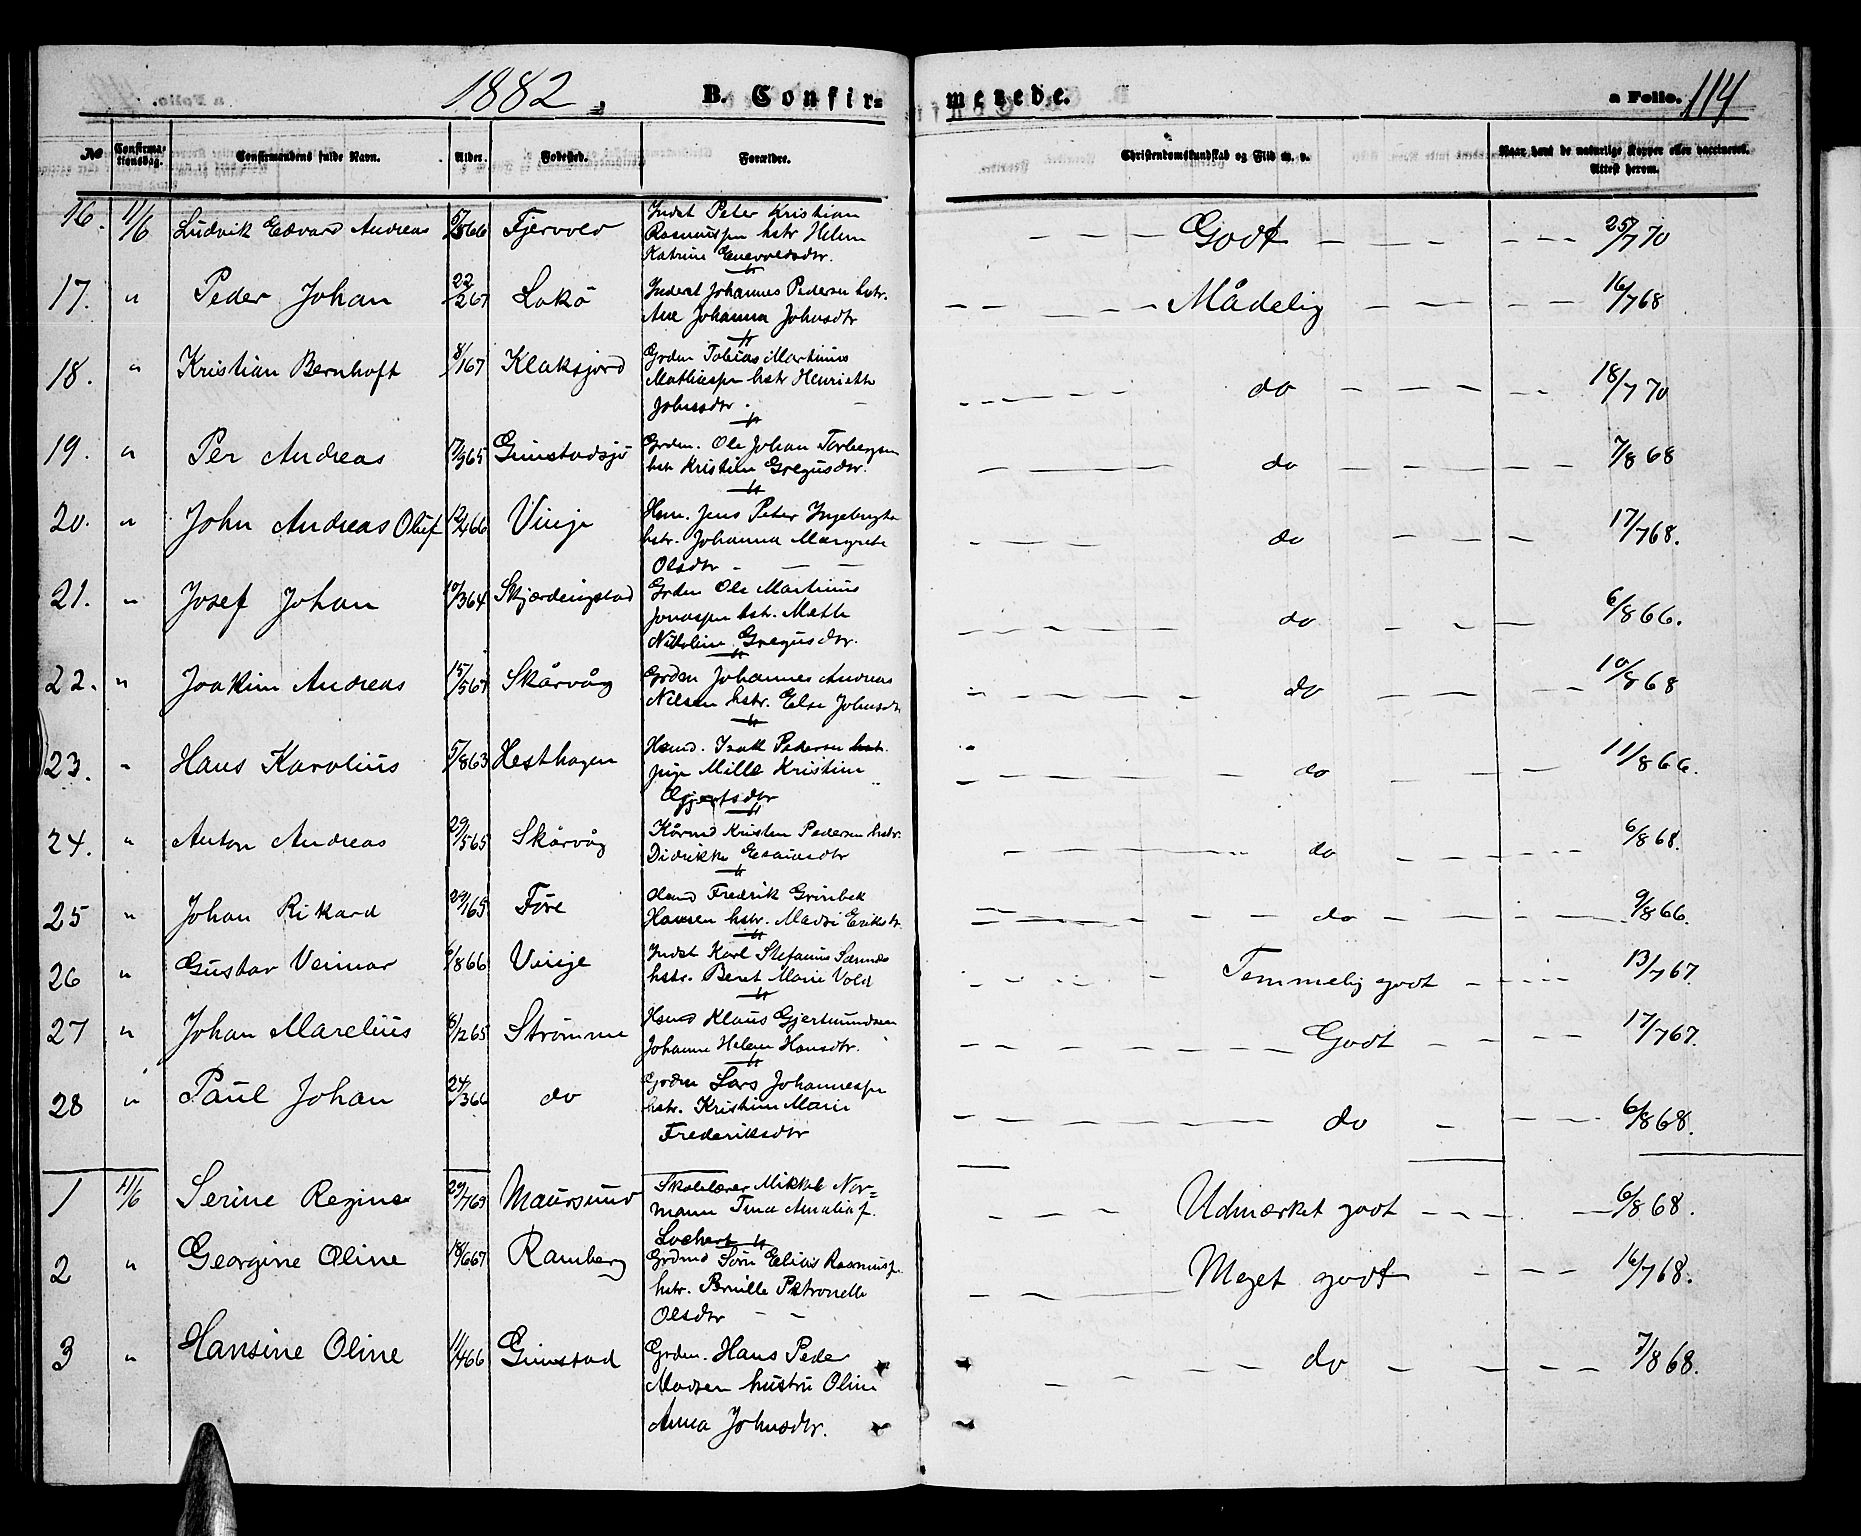 1882.
B. Confir=
merede.
a Folio. 114
No
Confirma-
tionsdag.
Confirmandens fulde Navn.
Alder.
Fødested.
Forældre.
Christendomskundskab og Flid m. v.
Naar havt de naturlige Kopper eller vaccineret.
Attest herom.
16. 11/6 Ludvik Edvard Andreas 5/866 Fjervoll Indst Peter Kristian
Rasmussen hstr Helen
Katrine Enevoldsdtr.
Godt 25/7 70
17. " Peder Johan 22/267 Lokø Inderst Johannes Pedersen hstr.
Ane Johanna Johnsdtr
Mådelig 16/7 68
18. " Kristian Bernhoft 8/167 Klaksjord Grdm Tobias Martinus
Mathiasen hstr Henriette
Johnsdtr.
do 18/7 70
19. " Per Andreas 17/965 Gimstadsjø Grdm. Ole Johan Torbergsen
hstr Kristine Gregusdtr.
do 7/8 68
20. " John Andreas Oluf 12/466 Vinje Hsm. Jens Peter
hstr. Johanna Margrete
Olsdtr
do 17/7 68.
21. " Josef Johan 10/364 Skjærdingstad Grdm Ole Martinus
Jonassen hstr. Mette
Nikoline Gregusdtr.
do 6/8 66.
22. " Joakim Andreas 15/567 Skårvåg Grdm Johannes Andreas
Nilsen hstr. Else Johnsdtr
do 10/8 68
23. " Hans Karolius 5/863 Hesthagen Hsmd. Isak Pedersen hstr.
pige Mille Kristine
do 11/8 66.
24. " Anton Andreas 29/565 Skårvåg Kårmd Kristen Pedersen hstr.
Didrikke Esaiasdtr
do 6/8 68.
25 " Johan Rikard 29/165 Føre Fredrik Grönbek
Hansen hstr. Madsi Eriksdtr.
do 9/8 66.
26 " Gustav Veimar 6/866 Vinje Indst Karl Stefanus Sannes
hstr. Beret Marie Vold
Temmelig godt 13/7 67.
27 " Johan Marelius 8/1265 Strømme Hsmd Klaus Gjertmundsen
Johanne Helene Hansdtr.
Godt 17/7 67.
28 " Paul Johan 24/366 do Grdm Lars Johannessen
hstr. Kristine Marie
Frederiksdtr
do 6/8 68.
1 11/6 Serine Regine 29/765 Maursund Skolelærer Mikkel Nor=
mann Tina Amalia f.
Lochert
Udmærket godt 6/8 68.
2 " Georgine Oline 18/667 Ramberg Grdmd Sørn Elias Rasmussen
hstr. Pernille Petronelle
Olsdtr
Meget godt 16/7 68.
3 " Hansine Oline 11/466 Gimstad Grdm. Hans Peder
Madsen hustru Oline
Anna Johnsdtr.
do 7/8 68.